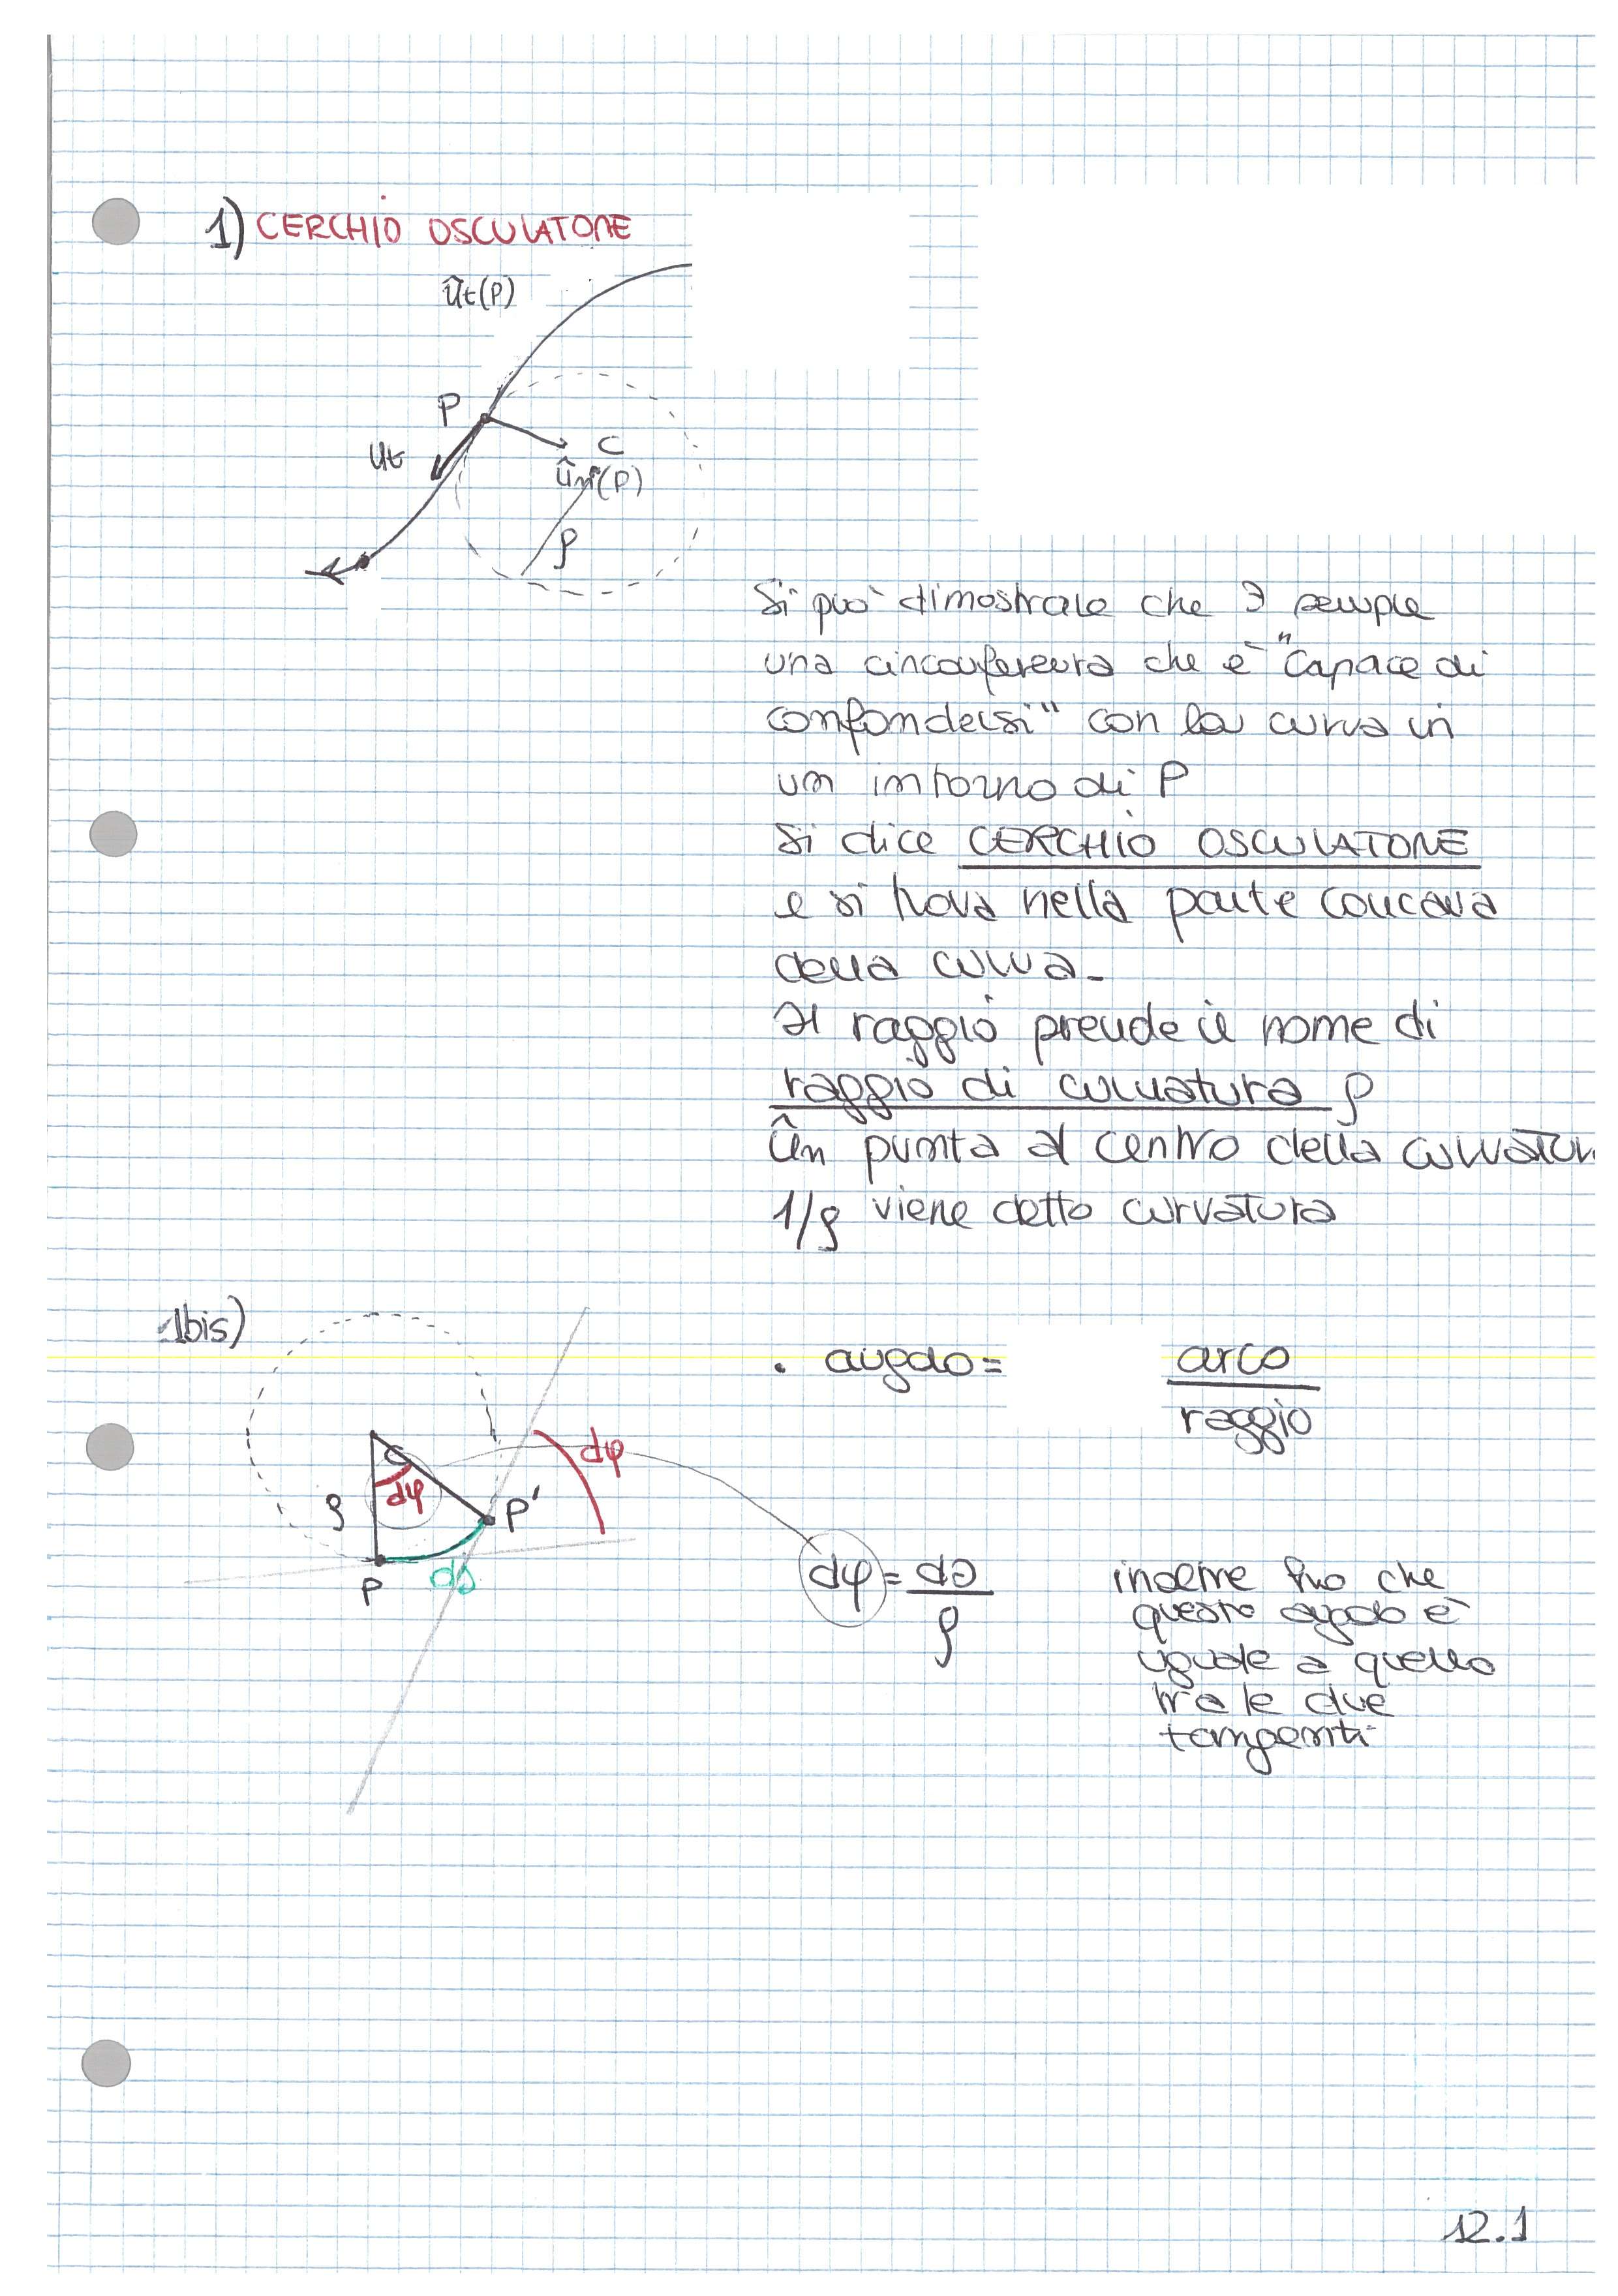 1) CERCHIO OSCULATORE
ût(P)
P
ut
C
ûn(P)
ρ
Si può dimostrare che ∃ sempre
una circonferenza che è "capace di
confondersi" con la curva in
un intorno di P
Si dice CERCHIO OSCULATORE
e si trova nella parte concava
della curva.
Il raggio prende il nome di
raggio di curvatura ρ
ûn punta al centro della curvatur
1/ρ viene detto curvatura
1bis)
. angolo = arco / raggio
C
dφ
dφ
ρ
P'
P
ds
dφ = ds / ρ
inoltre che
questo angolo è
uguale a quello
tra le due
tangenti
12.1